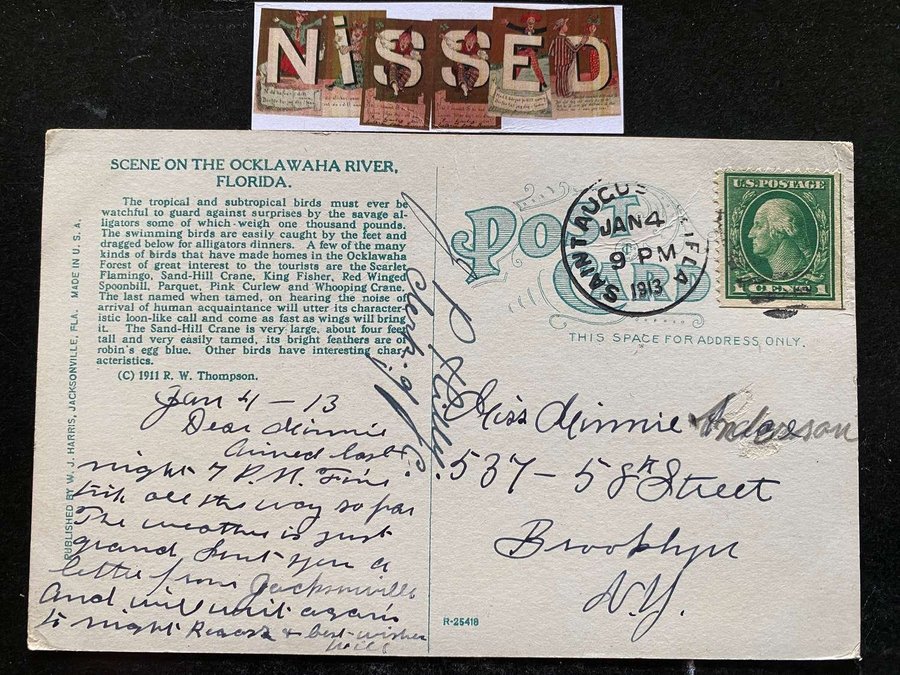 NiSSED
SCENE ON THE OCKLAWAHA RIVER,
FLORIDA.
The tropical and subtropical birds must ever be
watchful to guard against surprises by the savage al-
ligators some of which weigh one thousand pounds.
The swimming birds are easily caught by the feet and
dragged below for alligators dinners. A few of the many
kinds of birds that have made homes in the Ocklawaha
Forest of great interest to the tourists are the Scarlet
Flamingo, Sand-Hill Crane, King Fisher, Red Winged
Spoonbill, Parquet, Pink Curlew and Whooping Crane.
The last named when tamed, on hearing the noise of
arrival of human acquaintance will utter its character-
istic loon-like call and come as fast as wings will bring
it. The Sand-Hill Crane is very large, about four feet
tall and very easily tamed, its bright feathers are of
robin's egg blue. Other birds have interesting char-
acteristics.
(C) 1911 R. W. Thompson.
PUBLISHED BY W. J. HARRIS, JACKSONVILLE, FLA. MADE IN U. S. A.
Jan 4 - 13
Dear Minnie
Arrived last
night 7 P.M. Fine
trip all the way so far
The weather is just
grand Sent you a
letter from Jacksonville
and will writ again
to night Regards & best wishes
Post
Card
SAINT AUGUS FLA
JAN 4
9 PM
1913
U.S. POSTAGE
THIS SPACE FOR ADDRESS ONLY.
Miss Minnie Anderson
537 - 58th Street
Brooklyn
N.Y.
R-25418